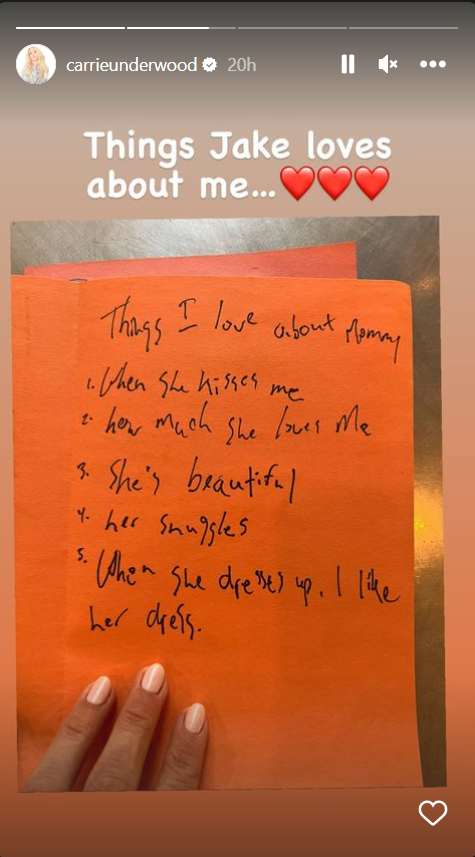 carrieunderwood 20h
Things Jake loves
about me...❤️❤️❤️
Things I love about Mommy
1. When She kisses me
2. how much she loves Me
3. She's beautiful
4. her snuggles
5. When she dresses up. I like
her dress.